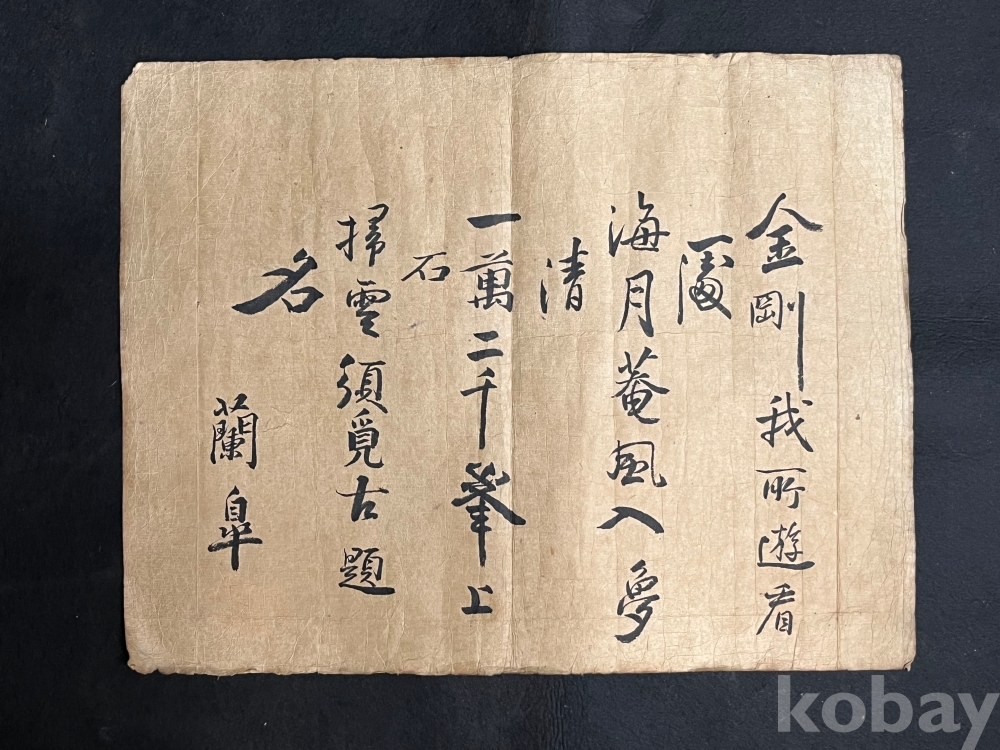 金剛我所遊看
海月菴風入夢
清
一萬二千峯上
石
掃雲須覓古題
名
蘭皐
kobay